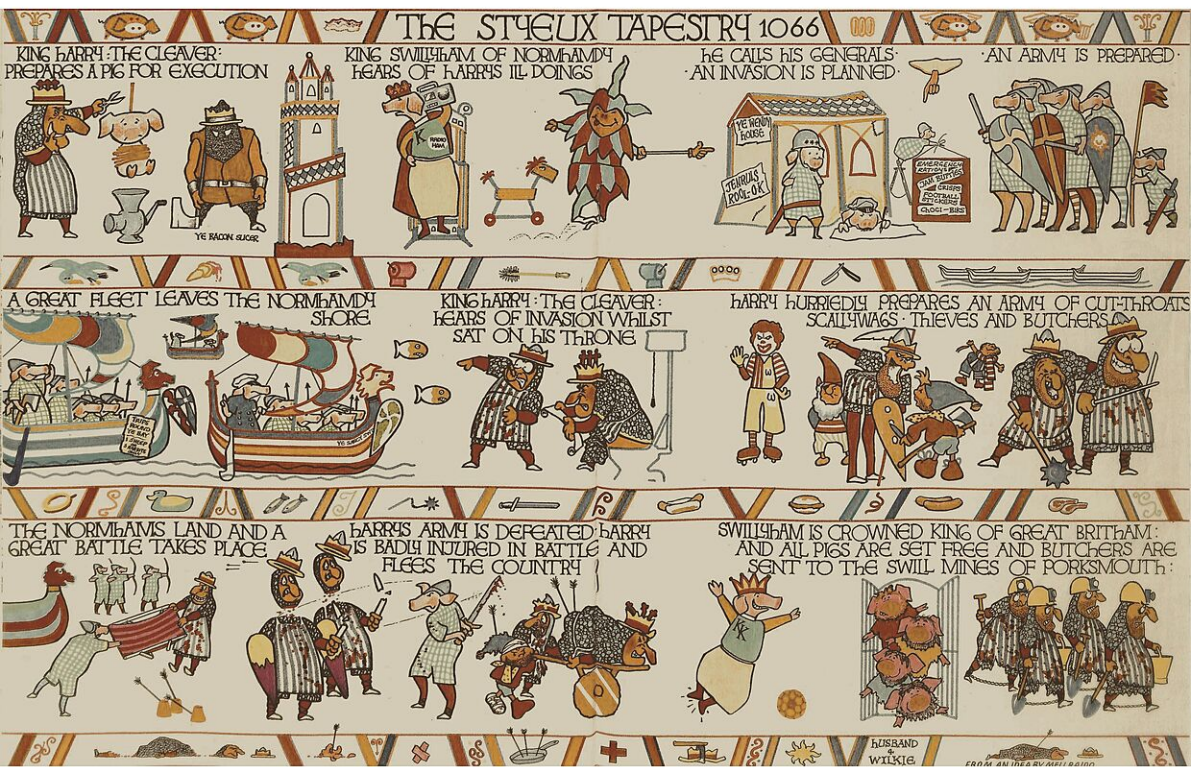 THE STYEUX TAPESTRY 1066
KING HARRY : THE CLEAVER :
PREPARES A PIG FOR EXECUTION
YE BACON SLICER
KING SWILLYHAM OF NORMHAMDY
HEARS OF HARRYS ILL DOINGS
K
RADIO
HAM
HE CALLS HIS GENERALS ·
· AN INVASION IS PLANNED ·
YE WENDY
HOUSE
JENRULS
ROOL-OK
EMERGENCY
RATIONS
JAM BUTTIES
CRISPS
FOOTBALL
STICKERS
CHOCI-BIKS
· AN ARMY IS PREPARED ·
A GREAT FLEET LEAVES THE NORMHAMDY
SHORE
ROUND
YE BAY
KING HARRY : THE CLEAVER :
HEARS OF INVASION WHILST
SAT ON HIS THRONE
HARRY HURRIEDLY PREPARES AN ARMY OF CUT-THROATS
SCALLYWAGS · THIEVES AND BUTCHERS
THE NORMHAMS LAND AND A
GREAT BATTLE TAKES PLACE
HARRYS ARMY IS DEFEATED HARRY
IS BADLY INJURED IN BATTLE AND
FLEES THE COUNTRY
SWILLYHAM IS CROWNED KING OF GREAT BRITHAM :
AND ALL PIGS ARE SET FREE AND BUTCHERS ARE
SENT TO THE SWILL MINES OF PORKSMOUTH :
K
HUSBAND
&
WILKIE
FROM AN IDEA BY